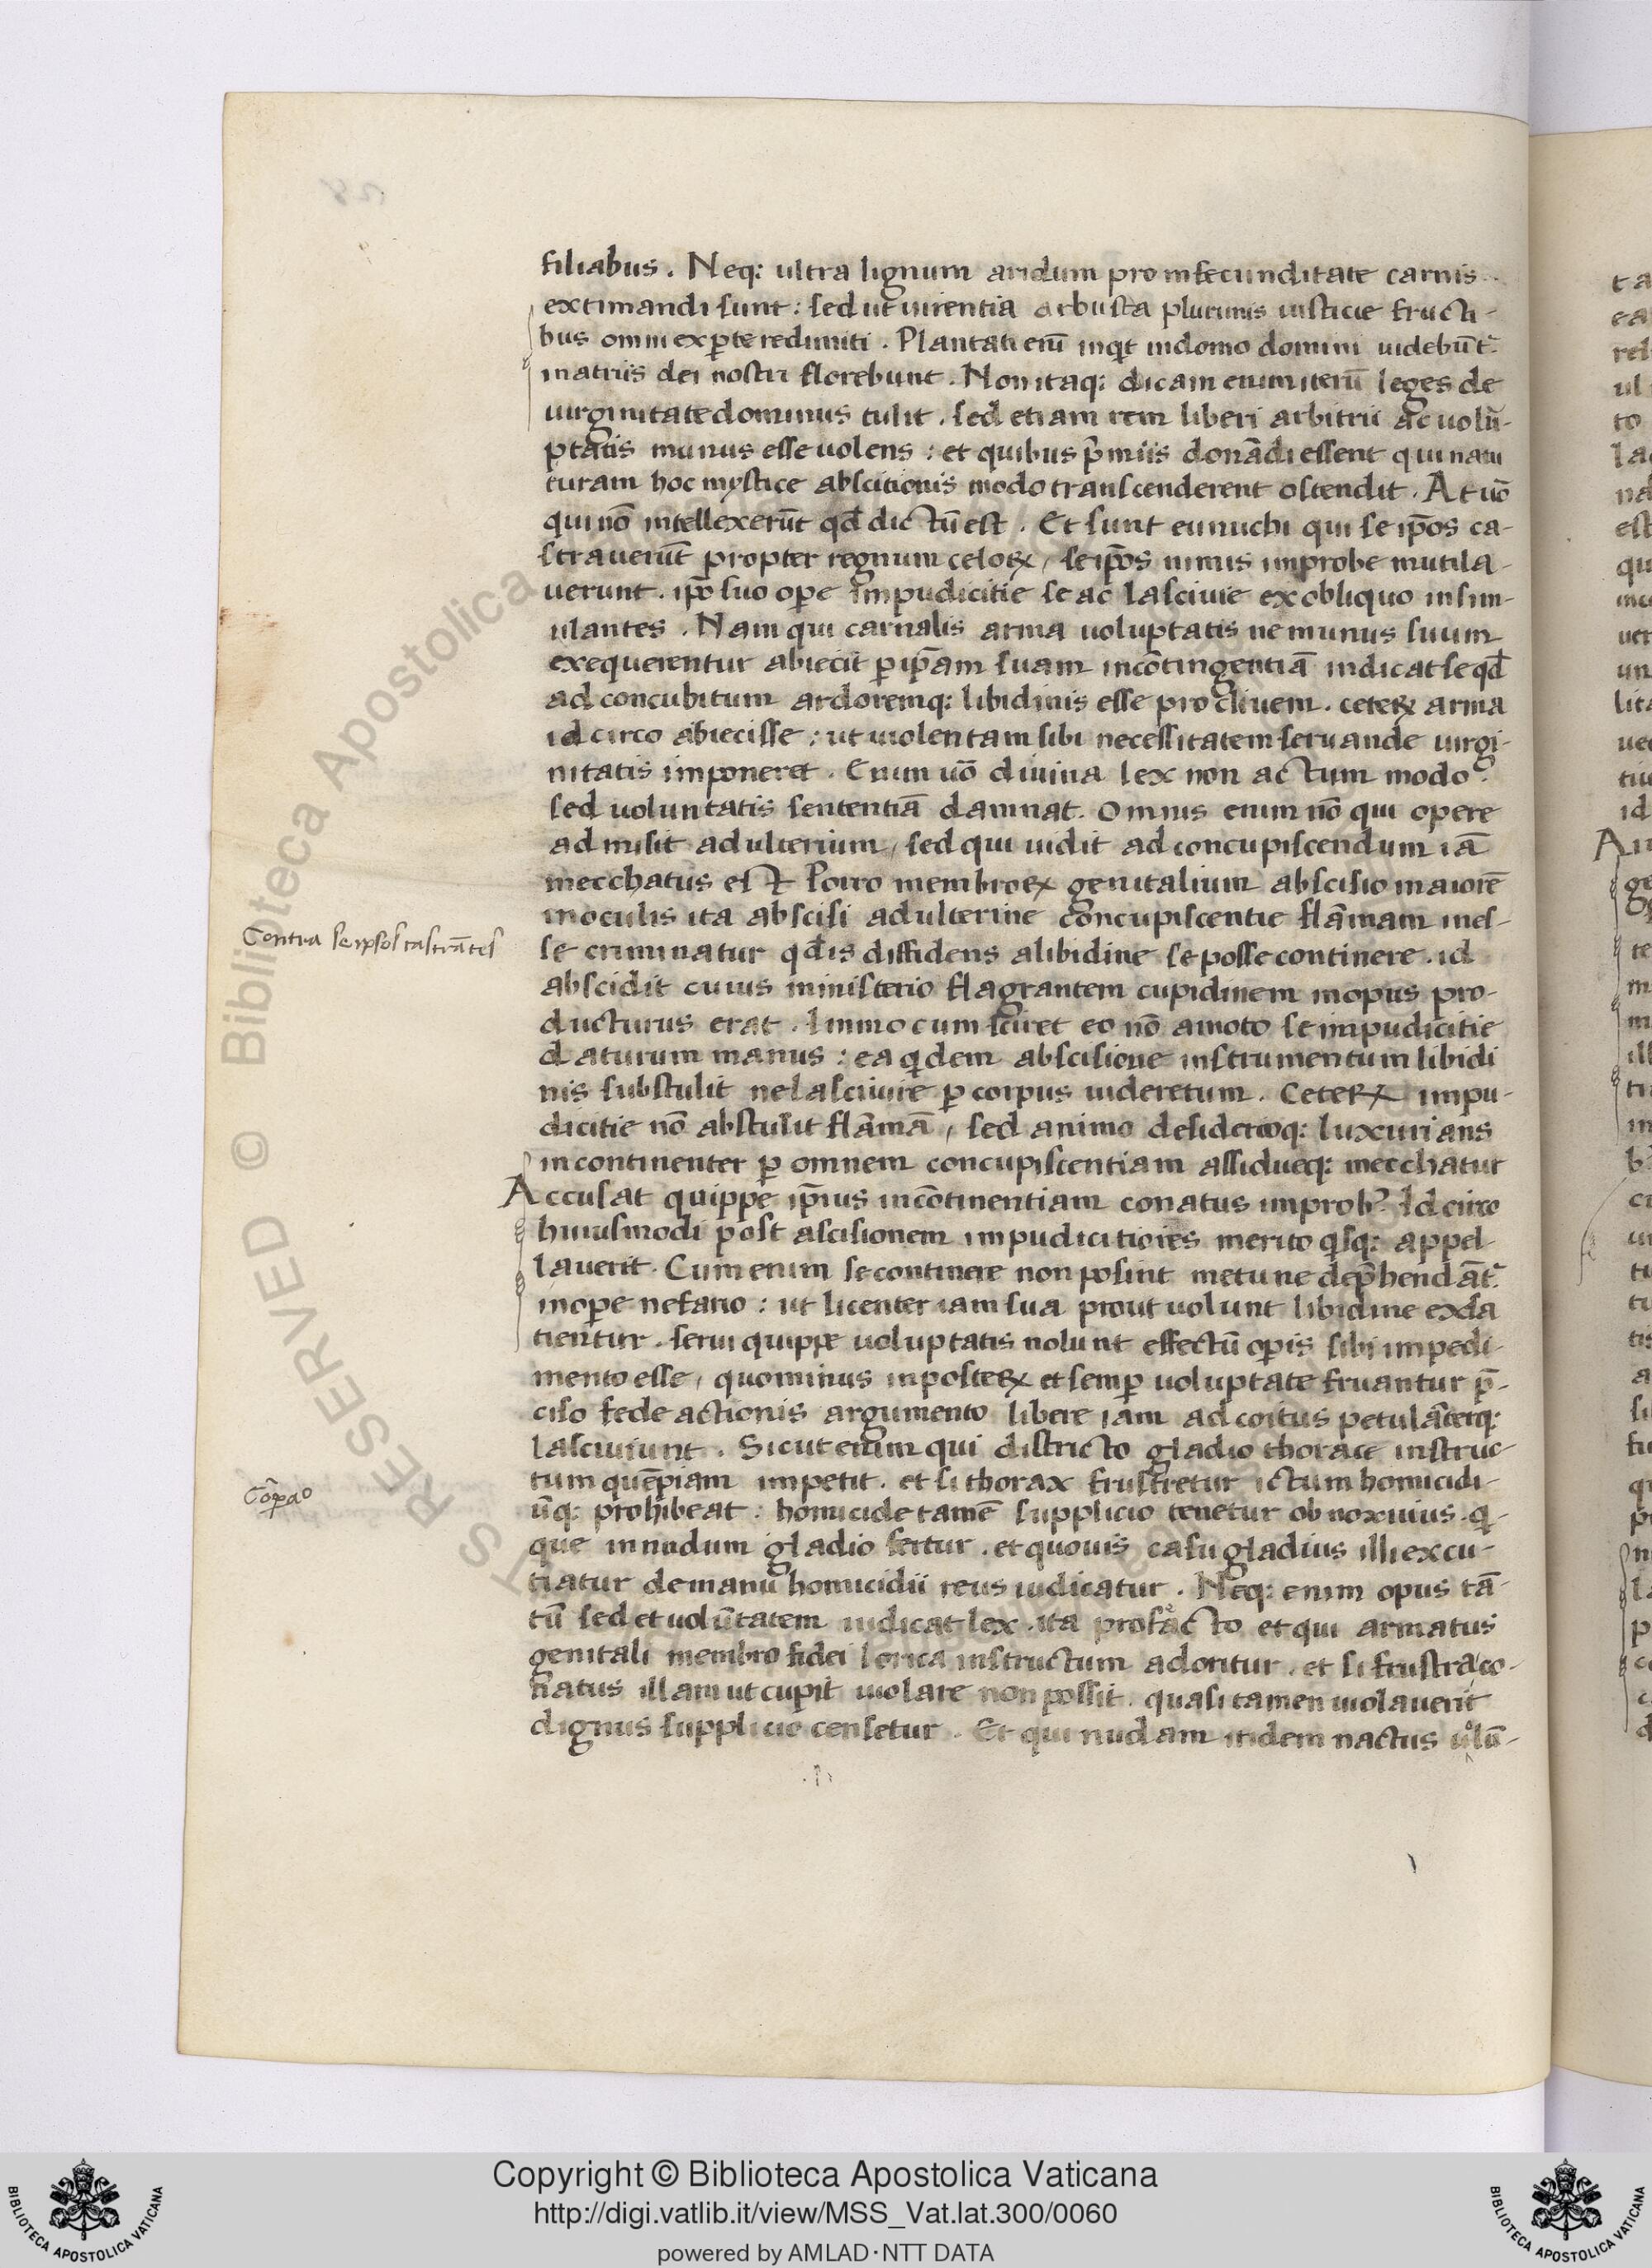 filiabus. Neq: ultra lignum aridum pro infecunditate carnis
extimandi sunt: sed ut uirentia arbusta plurimis iusticie fructi-
bus omni ex pte redimiti. Plantati eni᷃ inqt in domo domini uidebu᷃t᷑
in atriis dei nostri florebunt. Non itaq: dicam enim iteru᷃ leges de
uirginitate dominus tulit. sed etiam rem liberi arbitrii ac uolu᷃-
ptatis munus esse uolens: et quibus p᷃miis dona᷃di essent qui natu
turam hoc mystice abscitionis modo transcenderent ostendit. At uo᷃
qui no᷃ intellexeru᷃t qd᷃ dictu᷃ est. Et sunt eunuchi qui se ip᷃os ca-
straueru᷃t propter regnum celoꝝ, se ip᷃os nimis improbe mutila-
uerunt. ip᷃o suo ope impudicitie se ac lasciuie ex obliquo insim-
ulantes. Nam qui carnalis arma uoluptatis ne munus suum
exequerentur abiecit ꝑ ip᷃am suam inco᷃tingentia᷃ indicat se qd᷃
ad concubitum ardoremq: libidinis esse procliuem. ceteꝝ arma
id circo abiecisse: ut uiolentam sibi necessitatem seruande uirgi-
nitatis imponeret. Enim uo᷃ diuina lex non actum modo
sed uoluntatis sententia᷃ damnat. Omnis enim no᷃ qui opere
admisit adulterium, sed qui uidit ad concupiscendum ia᷃
mecchatus est Porro membroꝝ genitalium abscisio maiore᷃
in oculis ita abscisi adulterine concupiscentie fla᷃mam ines-
Contra se ipsos castra᷃tes
se criminatur qd᷃ is diffidens a libidine se posse continere. id
abscidit cuius ministerio flagrantem cupidinem in opus pro-
ducturus erat. Immo cum sciret eo no᷃ amoto se impudicitie
daturum manus: ea qdem abscisione instrumentum libidi
nis substulit ne lasciuire ꝑ corpus uideretum. Ceteꝝ impu-
dicitie no᷃ abstulit fla᷃ma᷃, sed animo desiderioq: luxurians
incontinenter ꝑ omnem concupiscentiam assidueq: mecchatur
Accusat quippe ip᷃ius inco᷃tinentiam conatus improb᷒ Id circo
huiusmodi post ascisionem impudicitiores merito qsq: appel-
lauerit. Cum enim se continere non posint metu ne dep᷃henda᷃t᷑
in ope nefario: ut licenter iam sua prout uolunt libidine exsa
tientur. serui quippe uoluptatis nolunt effectu᷃ opis sibi impedi-
mento esse, quominus in posteꝝ et semꝑ uoluptate fruantur p᷃-
ciso fede actionis argumento libere iam ad coitus petula᷃terq:
lasciuiunt. Sicut enim qui districto gladio thorace instruc-
tum que᷃piam impetit. et si thorax frustretur ictum homicidi-
Co᷃pao
u᷃q: prohibeat: homicide tame᷃ supplicio tenetur obnoxiuius. q-
que in nudum gladio fertur. et quouis casu gladius illi excu-
tiatur de manu homicidii reus iudicatur. Neq: enim opus ta᷃-
tu᷃ sed et uolu᷃tatem iudicat lex. ita profacto et qui armatus
genitali membro fidei lorica instructum adoritur. et si frustra co-
natus illam ut cupit uiolare non possit. quasi tamen uiolauerit
dignus supplicio censetur. Et qui nudam itidem nactus uolu᷃-
Copyright © Biblioteca Apostolica Vaticana
http://digi.vatlib.it/view/MSS_Vat.lat.300/0060
powered by AMLAD·NTT DATA
BIBLIOTECA APOSTOLICA VATICANA
BIBLIOTECA APOSTOLICA VATICANA